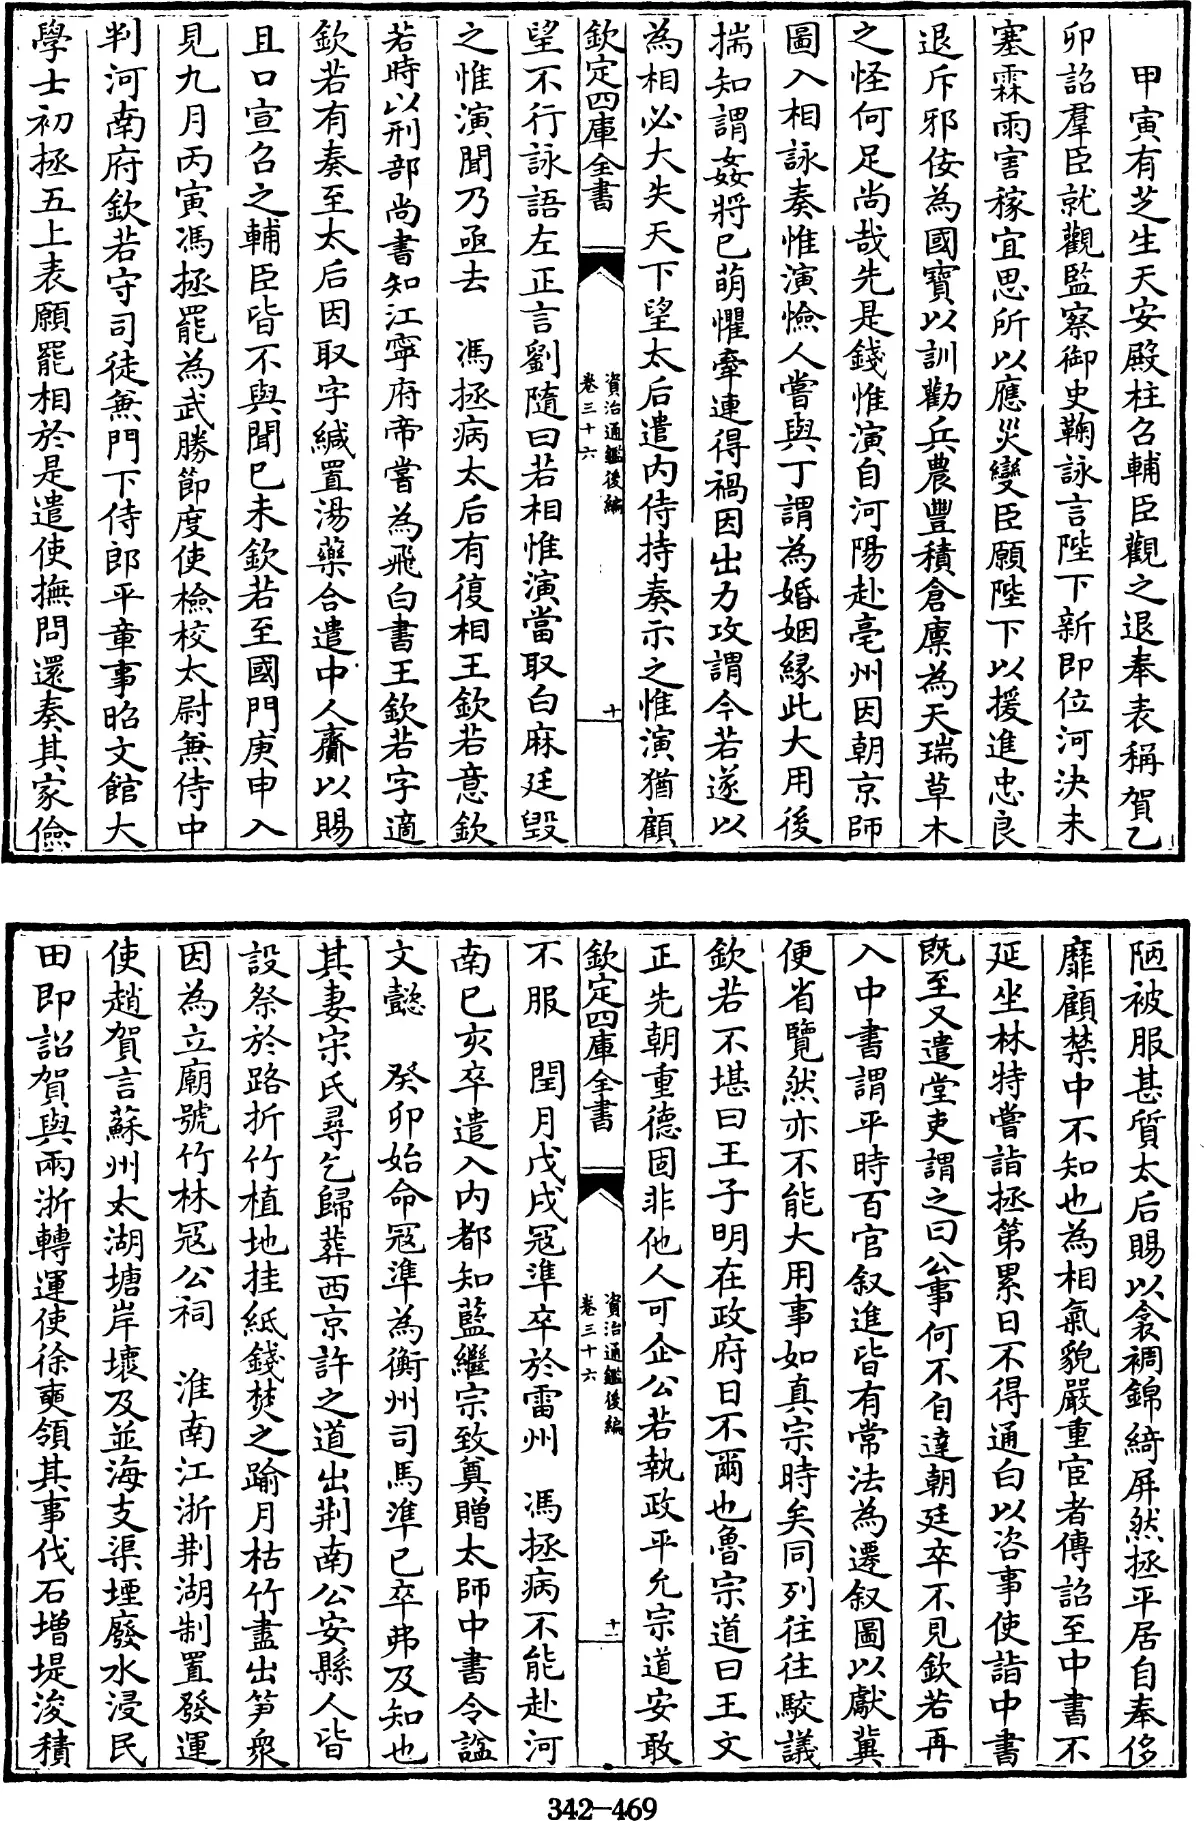 甲寅有芝生天安殿柱召輔臣觀之退奉表稱賀乙
卯詔羣臣就觀監察御史鞠詠言陛下新即位河決未
塞霖雨害稼宜思所以應災變臣願陛下以援進忠良
退斥邪佞為國寶以訓勸兵農豐積倉廪為天瑞草木
之怪何足尚哉先是錢惟演自河陽赴亳州因朝京師
圖入相詠奏惟演憸人嘗與丁謂為婚姻縁此大用後
揣知謂姦將已萌懼牽連得禍因出力攻謂今若遂以
為相必大失天下望太后遣内侍持奏示之惟演猶顧
欽定四庫全書
資治通鑑後編
卷三十六
十
望不行詠語左正言劉隨曰若相惟演當取白麻廷毀
之惟演聞乃亟去　馮拯病太后有復相王欽若意欽
若時以刑部尚書知江寧府帝嘗為飛白書王欽若字適
欽若有奏至太后因取字緘置湯藥合遣中人齎以賜
且口宣召之輔臣皆不與聞己未欽若至國門庚申入
見九月丙寅馮拯罷為武勝節度使檢校太尉兼侍中
判河南府欽若守司徒兼門下侍郎平章事昭文館大
學士初拯五上表願罷相於是遣使撫問還奏其家儉
陋被服甚質太后賜以衾裯錦綺屏然拯平居自奉侈
靡顧禁中不知也為相氣貌嚴重宦者傳詔至中書不
延坐林特嘗詣拯第累日不得通白以咨事使詣中書
既至又遣堂吏謂之曰公事何不自達朝廷卒不見欽若再
入中書謂平時百官叙進皆有常法為遷叙圖以獻冀
便省覽然亦不能大用事如真宗時矣同列往往駮議
欽若不堪曰王子明在政府日不爾也魯宗道曰王文
正先朝重德固非他人可企公若執政平允宗道安敢
欽定四庫全書
資治通鑑後編
卷三十六
十一
不服　閏月戊戌冦準卒於雷州　馮拯病不能赴河
南己亥卒遣入内都知藍繼宗致奠贈太師中書令諡
文懿　癸卯始命冦準為衡州司馬準已卒弗及知也
其妻宋氏尋乞歸葬西京許之道出荆南公安縣人皆
設祭於路折竹植地挂紙錢焚之踰月枯竹盡出笋衆
因為立廟號竹林冦公祠　淮南江浙荆湖制置發運
使趙賀言蘇州太湖塘岸壞及並海支渠堙廢水浸民
田即詔賀與兩浙轉運使徐奭領其事伐石增堤浚積
342-469